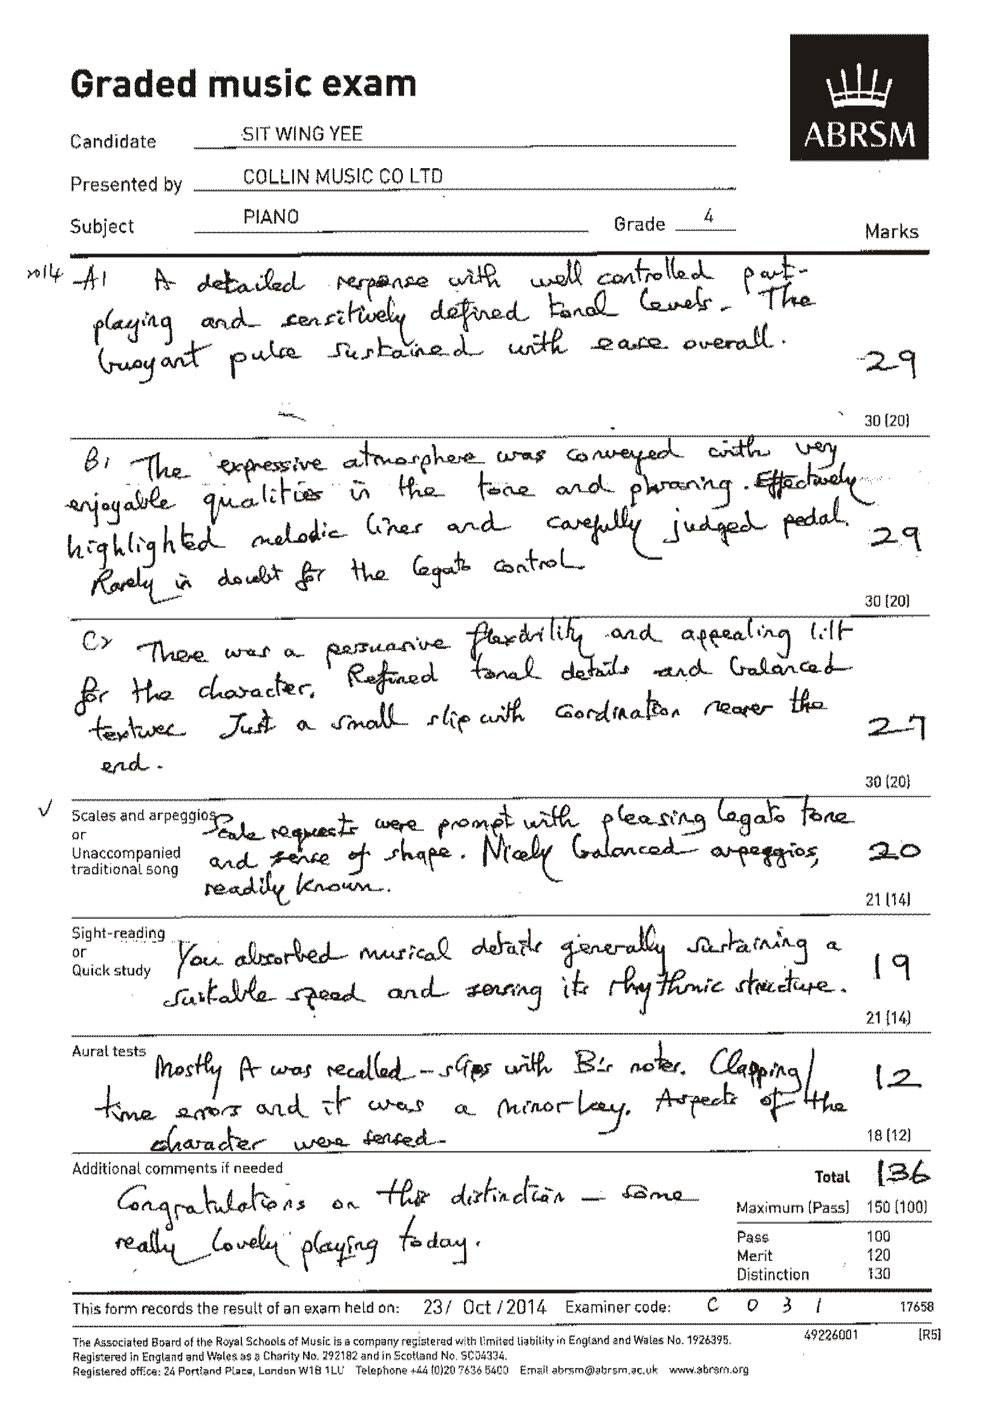 Graded music exam
ABRSM
Candidate SIT WING YEE
Presented by COLLIN MUSIC CO LTD
Subject PIANO Grade 4 Marks
A1 A detailed response with well controlled part-
playing and sensitively defined tonal levels. The
buoyant pulse sustained with ease overall.
29
30 (20)
B1 The expressive atmosphere was conveyed with very
enjoyable qualities in the tone and phrasing. Effectively
highlighted melodic lines and carefully judged pedal.
29
Rarely in doubt for the legato control
30 (20)
C2 There was a persuasive flexibility and appealing lilt
for the character. Refined tonal details and balanced
textures Just a small slip with coordination nearer the
27
end.
30 (20)
✓ Scales and arpeggios
or
Unaccompanied
traditional song
Scale requests were prompt with pleasing legato tone
and sense of shape. Nicely balanced arpeggios,
readily known.
20
21 (14)
Sight-reading
or
Quick study
You absorbed musical details generally sustaining a
suitable speed and sensing its rhythmic structure.
19
21 (14)
Aural tests
Mostly A was recalled – slips with B's notes. Clapping/
time errors and it was a minor key. Aspects of the
character were sensed.
12
18 (12)
Additional comments if needed
Congratulations on this distinction – some
really lovely playing today.
Total 136
Maximum (Pass) 150 (100)
Pass 100
Merit 120
Distinction 130
This form records the result of an exam held on: 23/ Oct /2014 Examiner code: C 0 3 1 17658
The Associated Board of the Royal Schools of Music is a company registered with limited liability in England and Wales No. 1926395. 49226001 (R5)
Registered in England and Wales as a Charity No. 292182 and in Scotland No. SC04334.
Registered office: 24 Portland Place, London W1B 1LU Telephone +44 (0)20 7636 5400 Email abrsm@abrsm.ac.uk www.abrsm.org